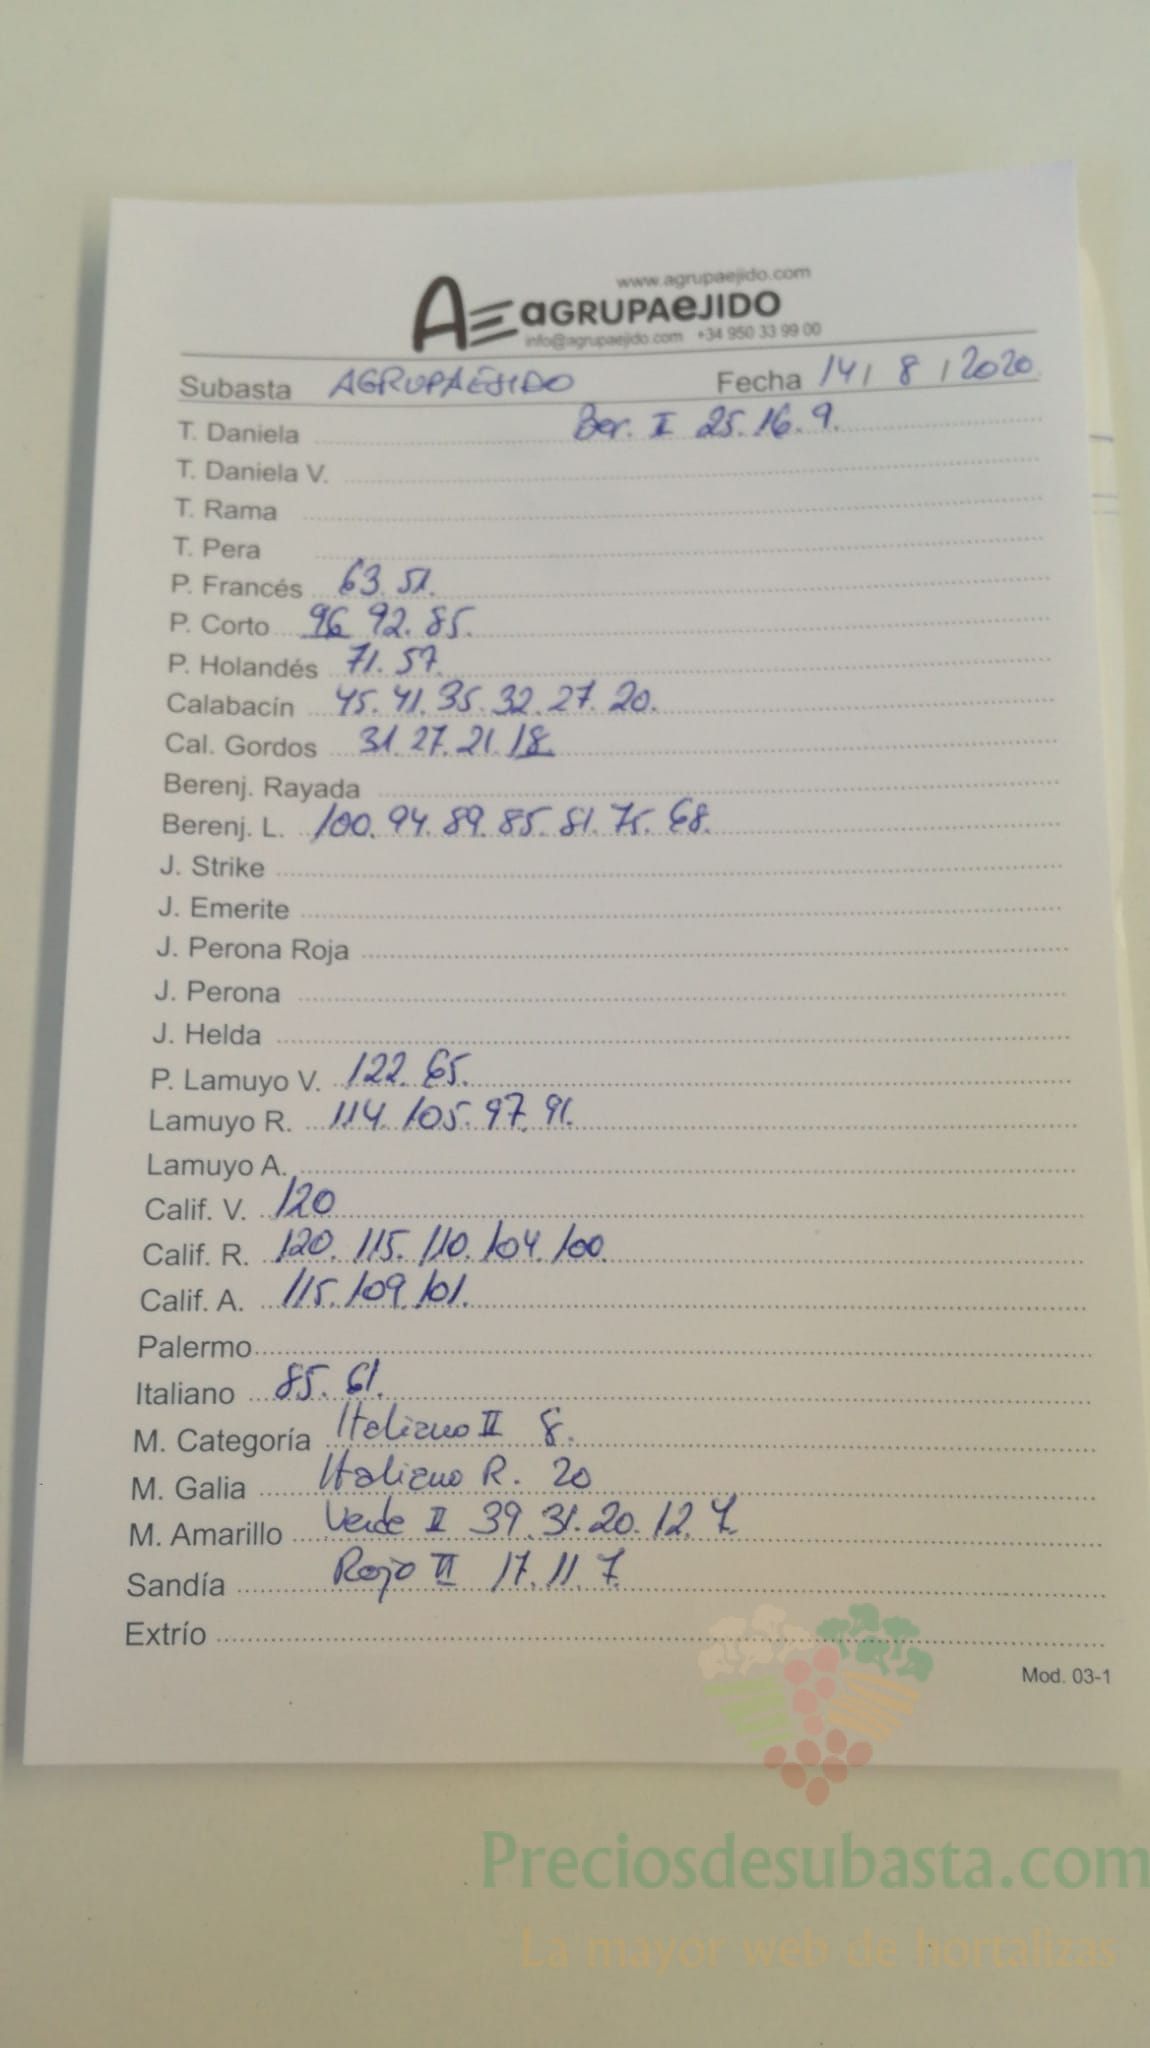 www.agrupaejido.com
AE aGRUPAeJIDO
info@agrupaejido.com +34 950 33 99 00
Subasta AGRUPAEJIDO Fecha 14 / 8 / 2020
T. Daniela Ber. II 25. 16. 9.
T. Daniela V.
T. Rama
T. Pera
P. Francés 63. 51.
P. Corto 96 92. 85.
P. Holandés 71. 57.
Calabacín 45. 41. 35. 32. 27. 20.
Cal. Gordos 31. 27. 21. 18.
Berenj. Rayada
Berenj. L. 100. 94. 89. 85. 81. 75. 68.
J. Strike
J. Emerite
J. Perona Roja
J. Perona
J. Helda
P. Lamuyo V. 122. 65.
Lamuyo R. 114. 105. 97. 91.
Lamuyo A.
Calif. V. 120
Calif. R. 120. 115. 110. 104. 100.
Calif. A. 115. 109. 101.
Palermo
Italiano 85. 61.
M. Categoría Italiano II 8.
M. Galia Italiano R. 20
M. Amarillo Verde II 39. 31. 20. 12. 7.
Sandía Rojo II 17. 11. 7.
Extrío
Mod. 03-1
Preciosdesubasta.com
La mayor web de hortalizas